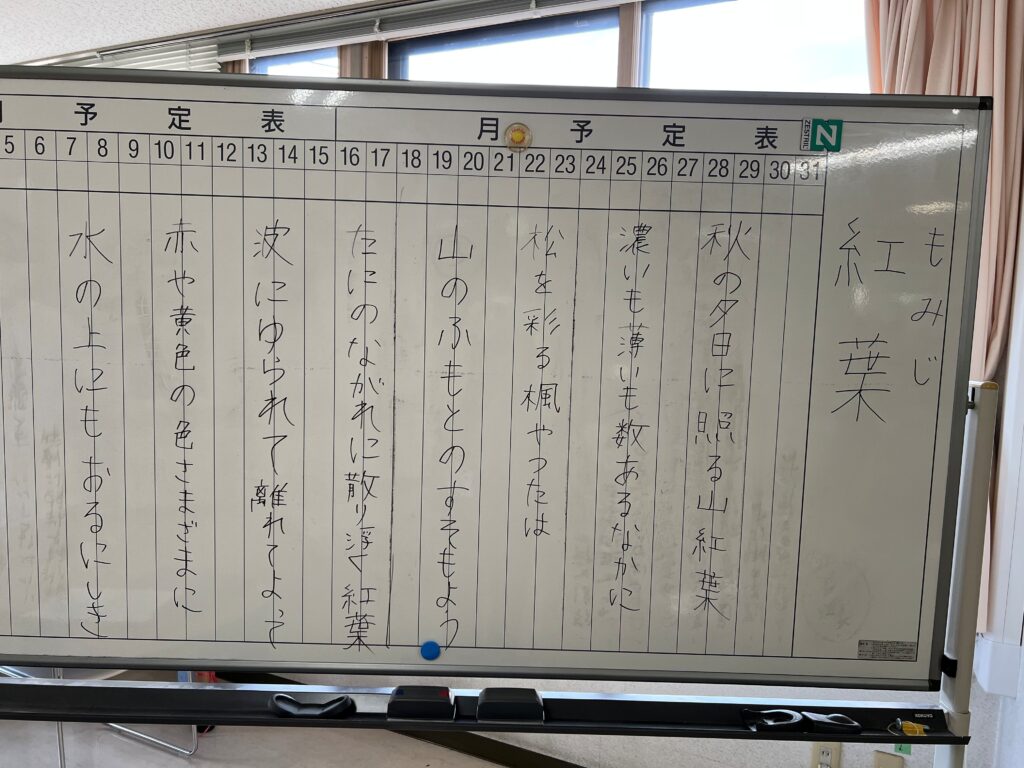 予定表
月予定表
ZESTRIL
N
5 6 7 8 9 10 11 12 13 14 15 16 17 18 19 20 21 22 23 24 25 26 27 28 29 30 31
もみじ
紅葉
秋の夕日に照る山紅葉
濃いも薄いも数あるなかに
松を彩る楓やつたは
山のふもとのすそもよう
たにのながれに散り浮く紅葉
波にゆられて離れてよって
赤や黄色の色さまざまに
水の上にもおるにしき
KOKUYO